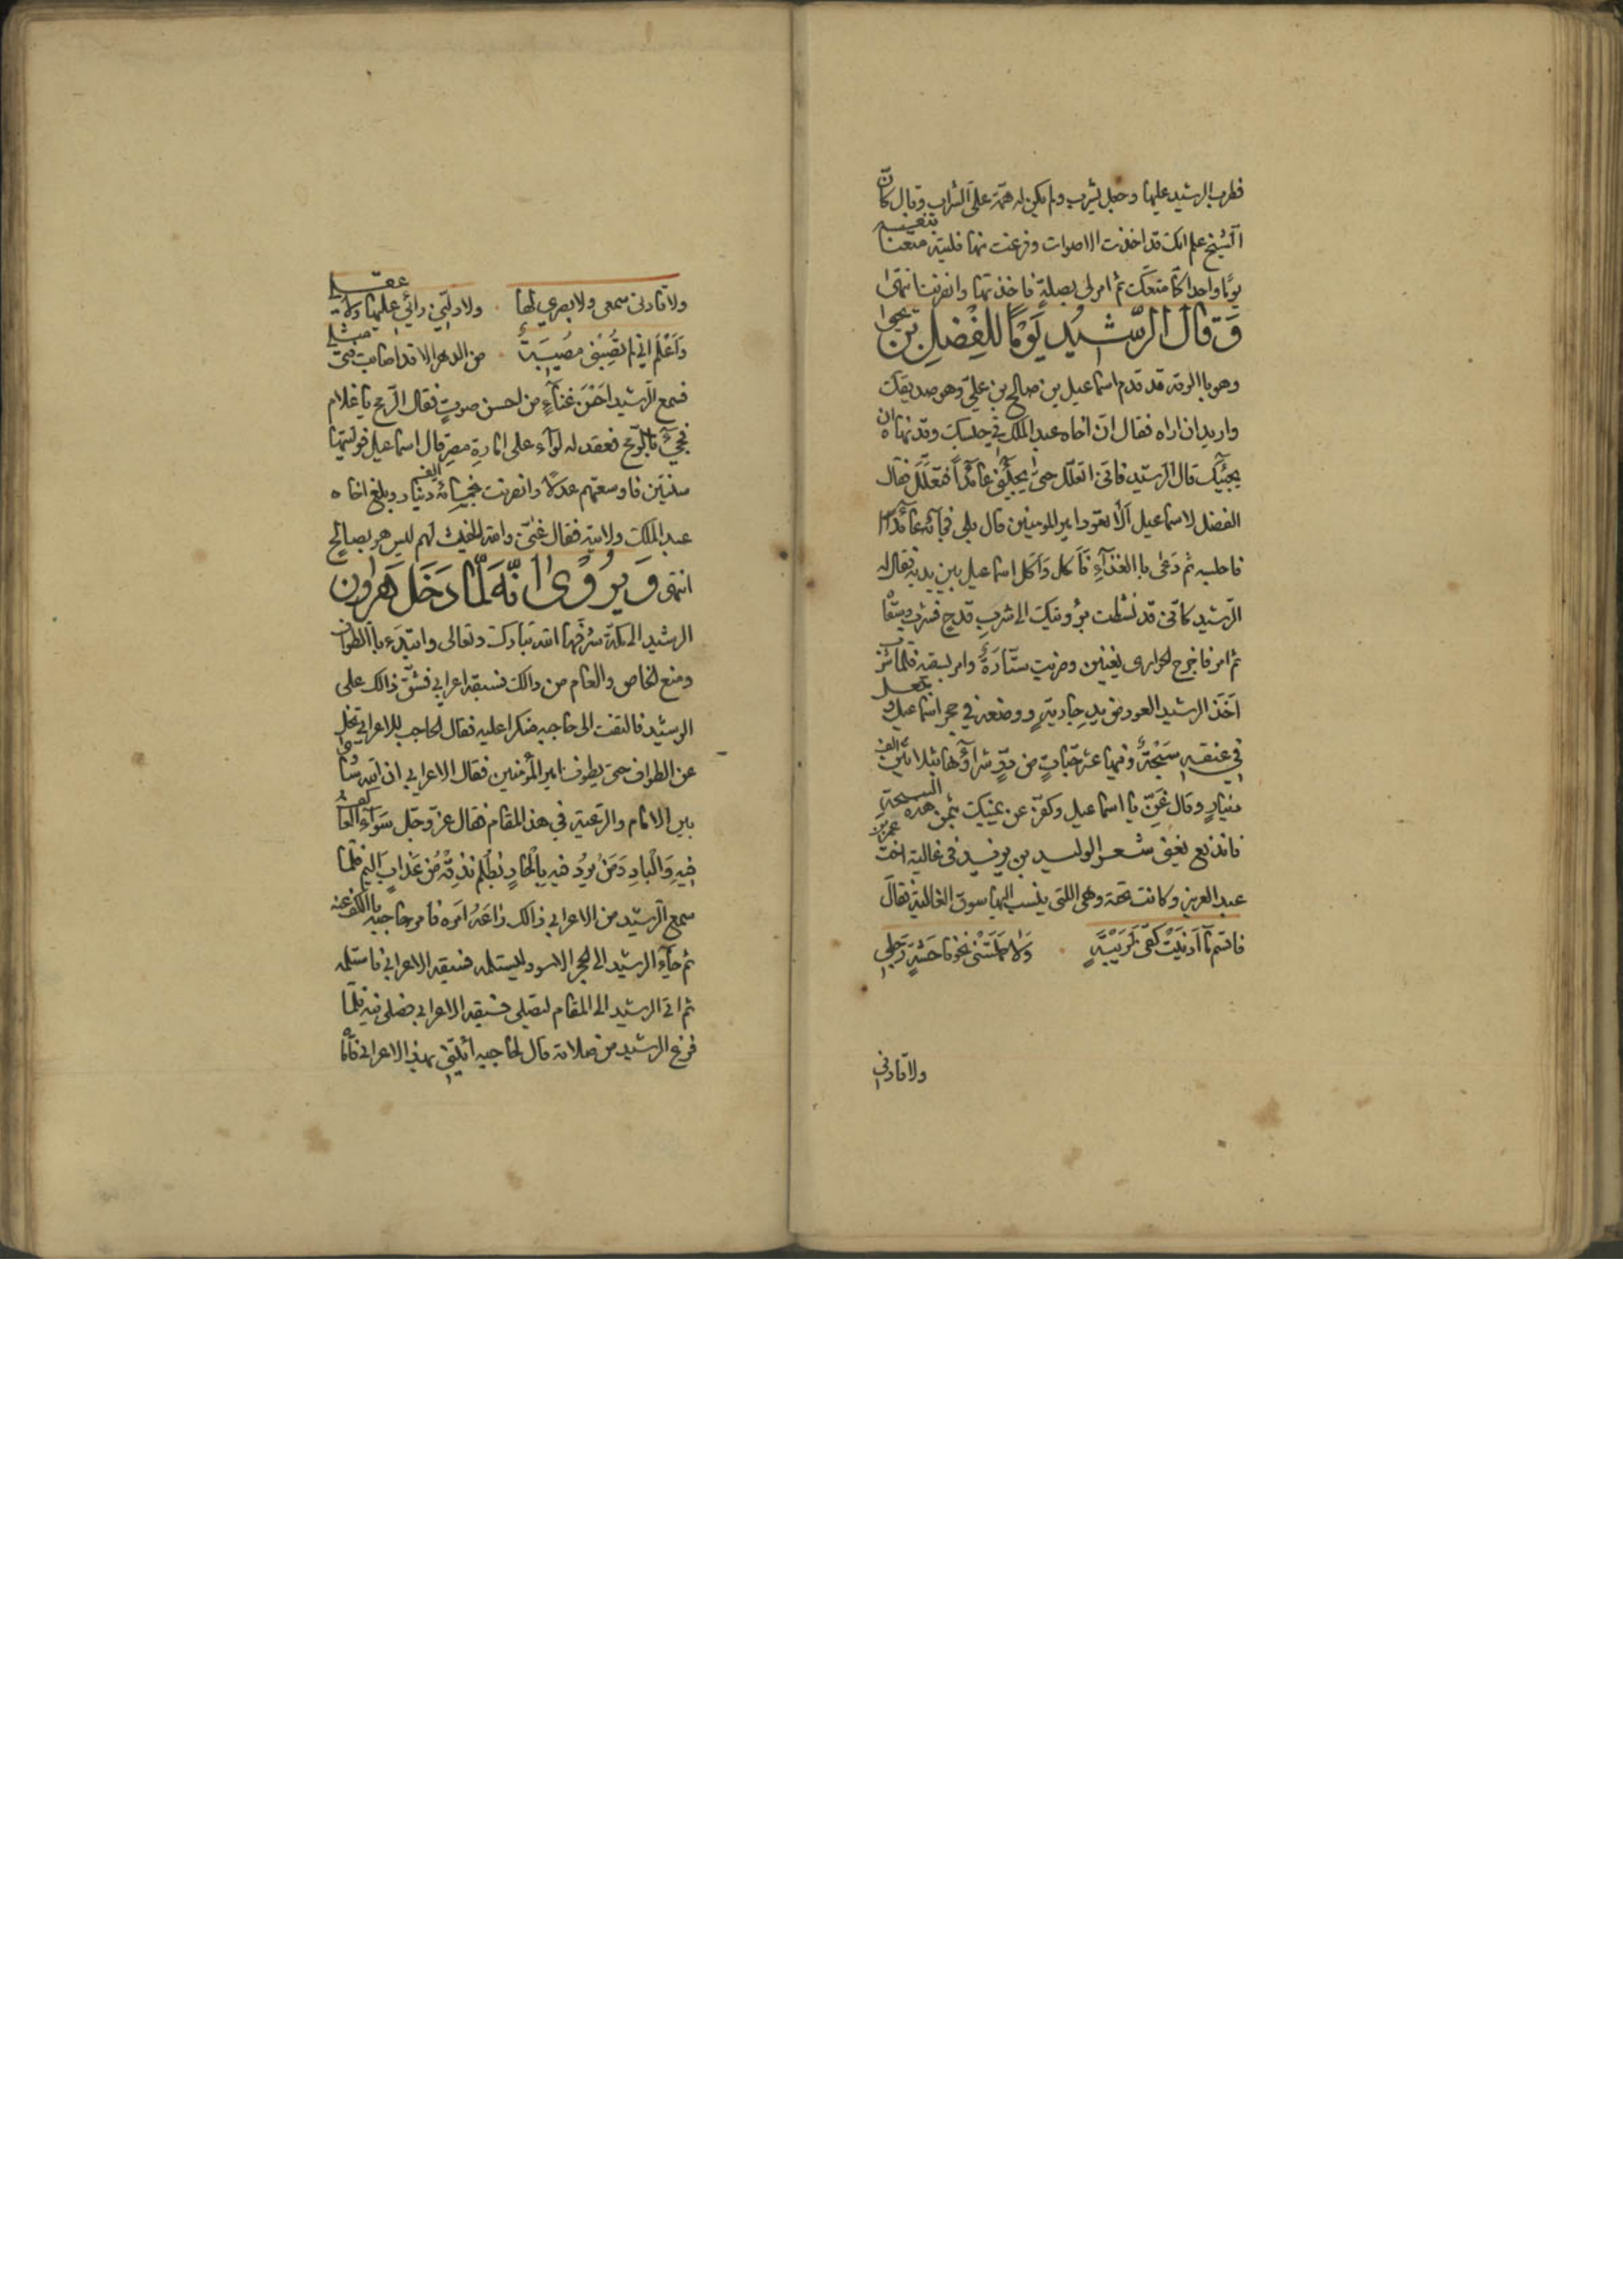 فطرب الرشيد عليها وجعل يشرب ولم يكن له همة على الشراب وقال كان
الشيخ علم انك قد اخذت الاصوات وفرغت منها فليته متعنا بنفسه
يومًا واحدا كما متعك ثم امر لي بصلة فاخذتها وانصرفنا انتهى
وَقَالَ الرَّشِيد يَوْمًا للفضل بن يحيى
وهو بالرقة قد قدم اسماعيل بن صالح بن علي وهو صديقك
واريد ان اراه فقال ان اخاه عبد الملك في حبسك وقد نهاه ان
يجيئك قال الرشيد فاني اتعلل حتى يجيئني عائدًا فتعلل فقال
الفضل لاسماعيل الا تعود امير المومنين قال بلى فجائه عائدا
فاجلسه ثم دعى باالغذآء فاكل واكل اسماعيل بين يديه فقال له
الرشيد كاني قد نشطت برؤيتك الى شرب قدح فشرب وسقا
ثم امر فاخرج الجوارى يغنين وضربت ستارة وامر بسقيه فلما شرب
اخذ الرشيد العود من يد جارية ووضعه في حجر اسماعيل وجعل
في عنقه سبحة وفيها عشر حبات من در شراؤها بثلاثين الف
دينار وقال غن يا اسماعيل وكفر عن يمينك بثمن هذه السبحة
فاندفع يغني شعر الوليد بن يزيد في غالية اخت عمر بن
عبد العزيز وكانت تحته وهي اللتي ينسب اليها سوق الغالية فقال
فاقسم ما ادنيت كفي لريبة ٠ ولا حملتني نحو فاحشة رجلي
ولا قادني
ولا قادني سمعي ولا بصري لها ٠ ولا دلني رائي عليها ولا عقلي
وَاَعْلَم اني لم تصبني مصيبة من الدهر الا قد اصابت فتى مثلي
فسمع الرشيد احسن غناء من احسن صوت فقال الرمح يا غلام
فجيء باالرمح فعقد له لوآء على امارة مصر قال اسماعيل فوليتها
سنتين فاوسعتهم عدلا وانصرفت بخمسمائة الف دينار وبلغ اخاه
عبد الملك ولايته فقال غنى والله الخبيث لهم ليس هو بصالح
انتهى وَيروى انَّهُ لَمَّا دَخَلَ هَرون
الرشيد الى مكة شرفها الله تبارك وتعالى وابتدء باالطواف
ومنع الخاص والعام من ذالك فسبقه اعرابي فشق ذالك على
الرشيد فالتفت الى حاجبه منكرا عليه فقال الحاجب للاعرابي تخل
عن الطواف حتى يطوف امير المؤمنين فقال الاعرابي ان الله ساوى
بين الامام والرعية في هذ المقام فقال عز وجل سوآء العاكف
فيه والباد ومن يرد فيه بالحاد بظلم نذقه من عذاب اليم فلما
سمع الرشيد من الاعرابي ذالك راعه امره فامر حاجبه باالكف عنه
ثم جآء الرشيد الى الحجر الاسود ليستلمه فسبقه الاعرابي فاستلمه
ثم اتى الرشيد الى المقام ليصلي فسبقه الاعرابي فصلى فيه فلما
فرغ الرشيد من صلاته قال لحاجبه ائتني بهذ الاعرابي فأتاه